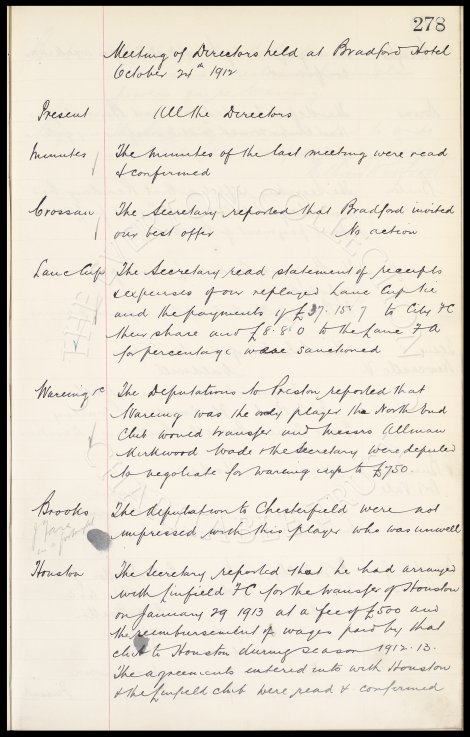 278
Meeting of Directors held at Bradford Hotel
October 24th 1912
Present All the Directors
Minutes The minutes of the last meeting were read
& confirmed
Crossan The Secretary reported that Bradford invited
our best offer No action
Lanc Cup The Secretary read statement of receipts
& expenses of our replayed Lanc Cup tie
and the payments of £37.15.7 to City FC
their share and £8.8.0 to the Lanc F A
for percentage were sanctioned
Wareing rc The Deputations to Preston reported that
Wareing was the only player the North End
Club would transfer and Messrs Allman
Kirkwood Wade & the Secretary were deputed
to negotiate for Wareing up to £750
Brooks The deputation to Chesterfield were not
impressed with this player who was unwell
in a fortnight
Houston The Secretary reported that he had arranged
with Linfield FC for the transfer of Houston
on January 29 1913 at a fee of £500 and
the reimbursement of wages paid by that
club to Houston during season 1912.13.
The agreements entered into with Houston
& the Linfield club were read & confirmed